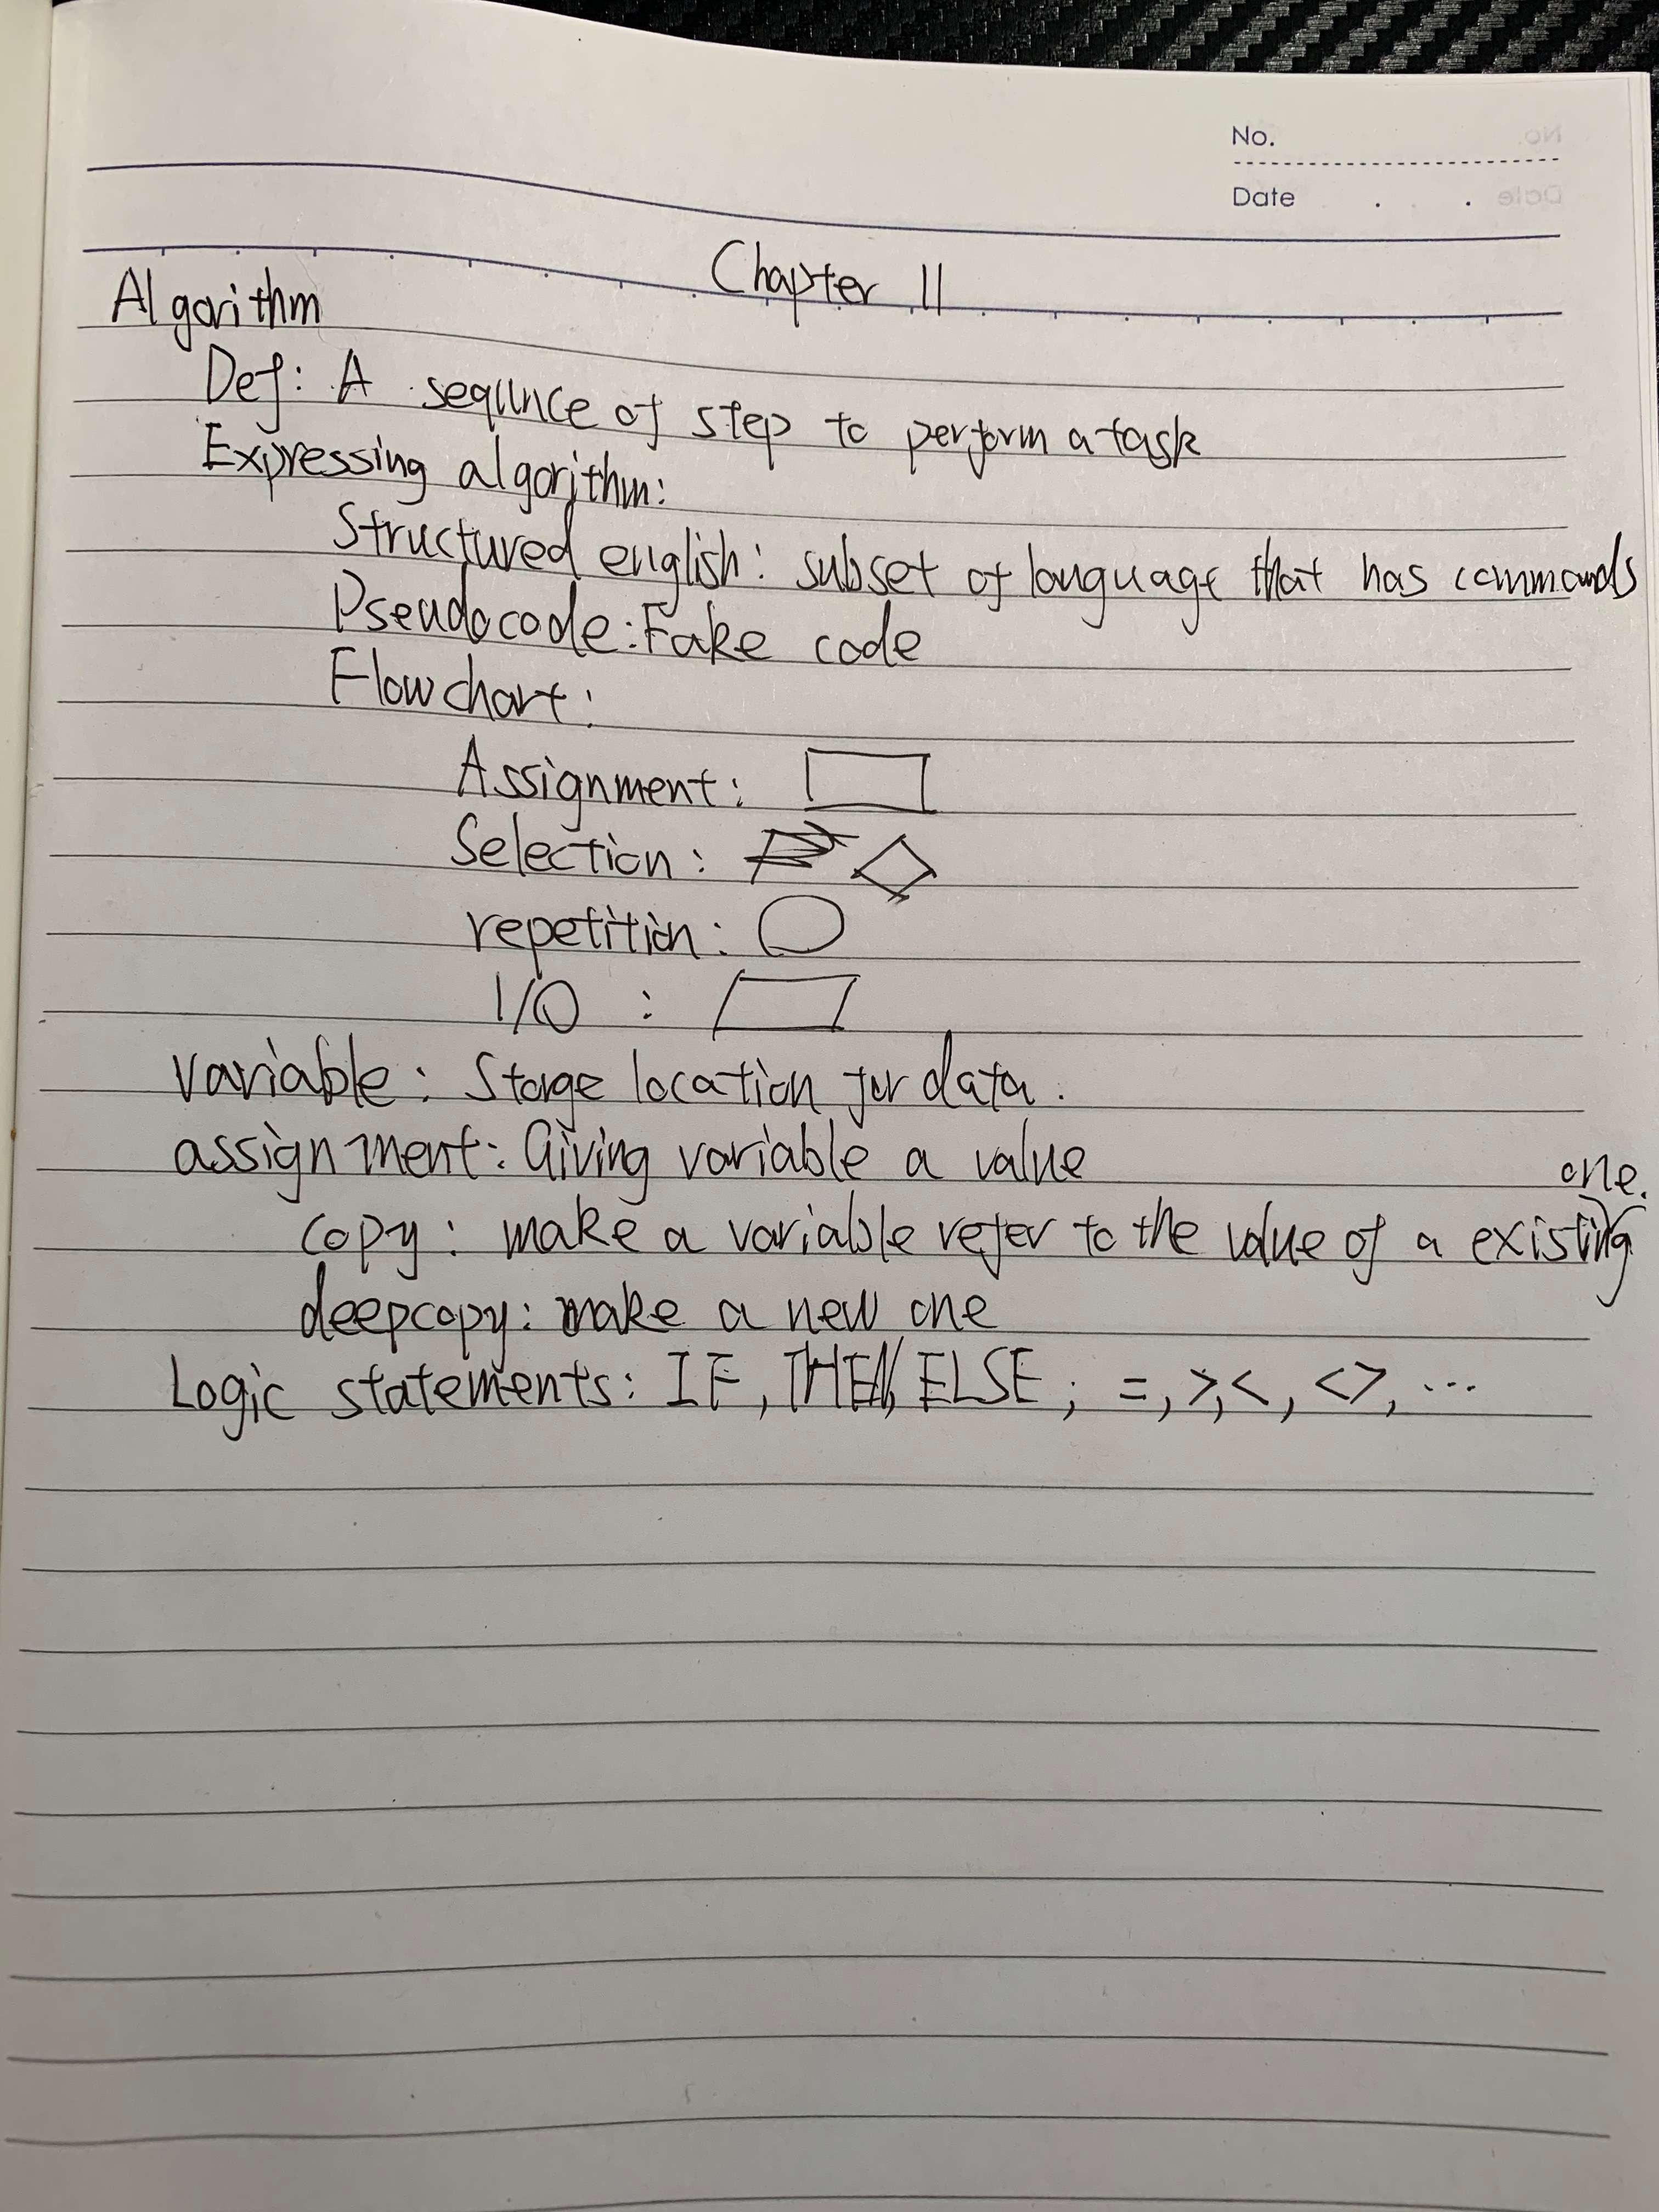 No.
Date . .
Chapter 11
Algorithm
Def: A sequnce of step to perform a task
Expressing algorithm:
Structured english: subset of language that has commands
Pseudocode: Fake code
Flowchart:
Assignment:
Selection:
repetition:
I/O :
Variable: Storge location for data.
assignment: Giving variable a value
copy: make a variable refer to the value of a existing one.
deepcopy: make a new one
Logic statements: IF, THEN, ELSE; =, >, <, <>, ...